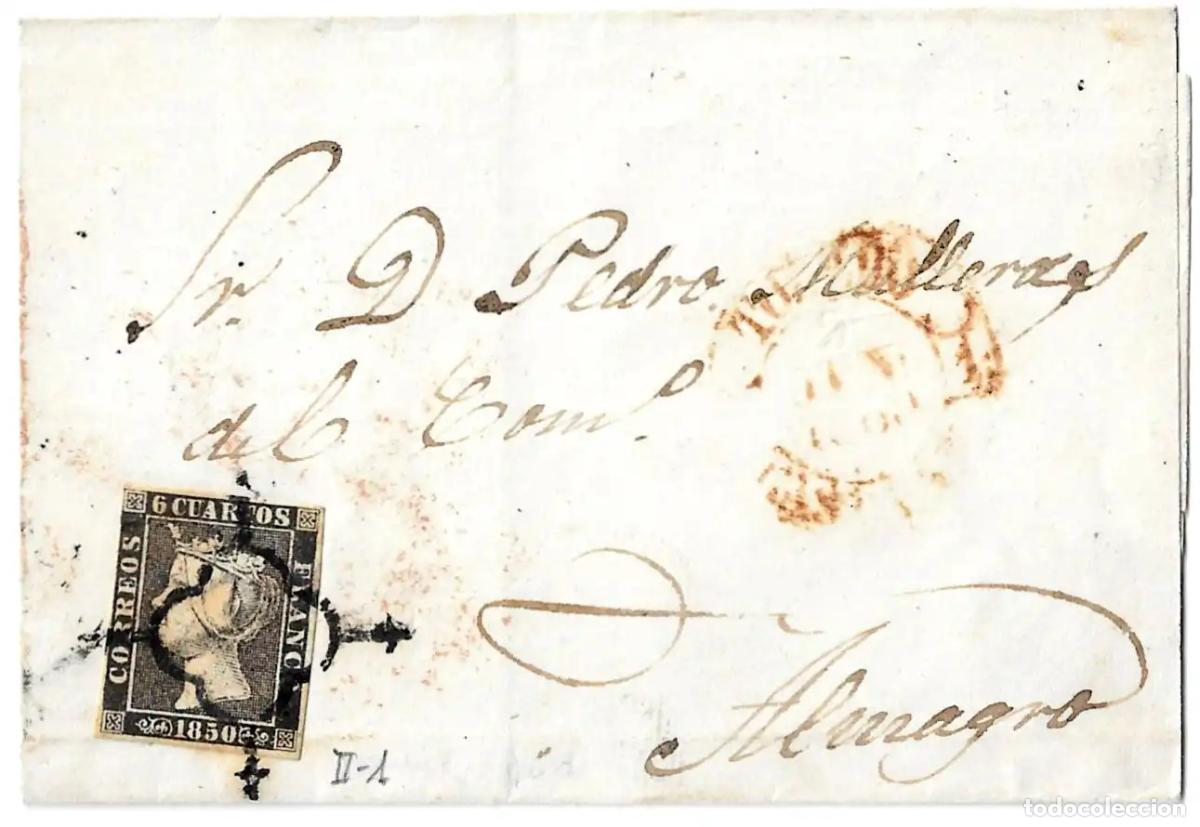 Sr. D Pedro
del Com.º
Almagro
6 CUARTOS
CORREOS
FRANCO
1850
II-1
todocoleccion